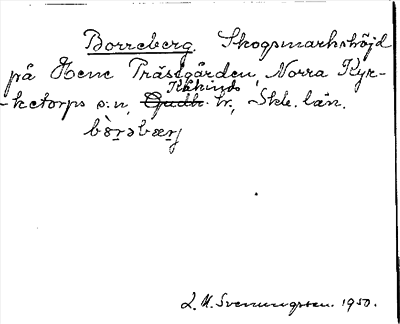 Borreberg. Skogsmarkshöjd
på Hene Prästgården, Norra Kyr-
-ketorps s:n, Kåkinds hr., Skbg. län.
bòrəbærj
L. M. Svenungsson. 1950.